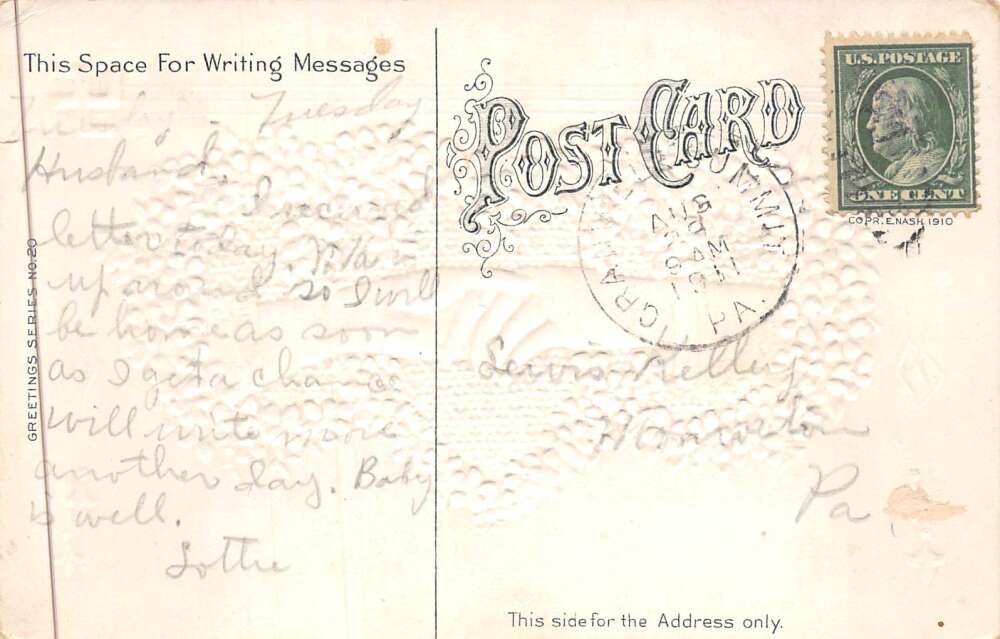 This Space For Writing Messages
Tuesday
Husband,
I received
letter today.
up around so I will
be home as soon
as I get a chance
will write more
another day. Baby
is well.
Lottie
GREETINGS SERIES NO. 20
POST CARD
U.S. POSTAGE
ONE CENT
COPR. E. NASH 1910
AUG
8
9 AM
1911
PA.
Lewis Kelley
Pa.
This side for the Address only.